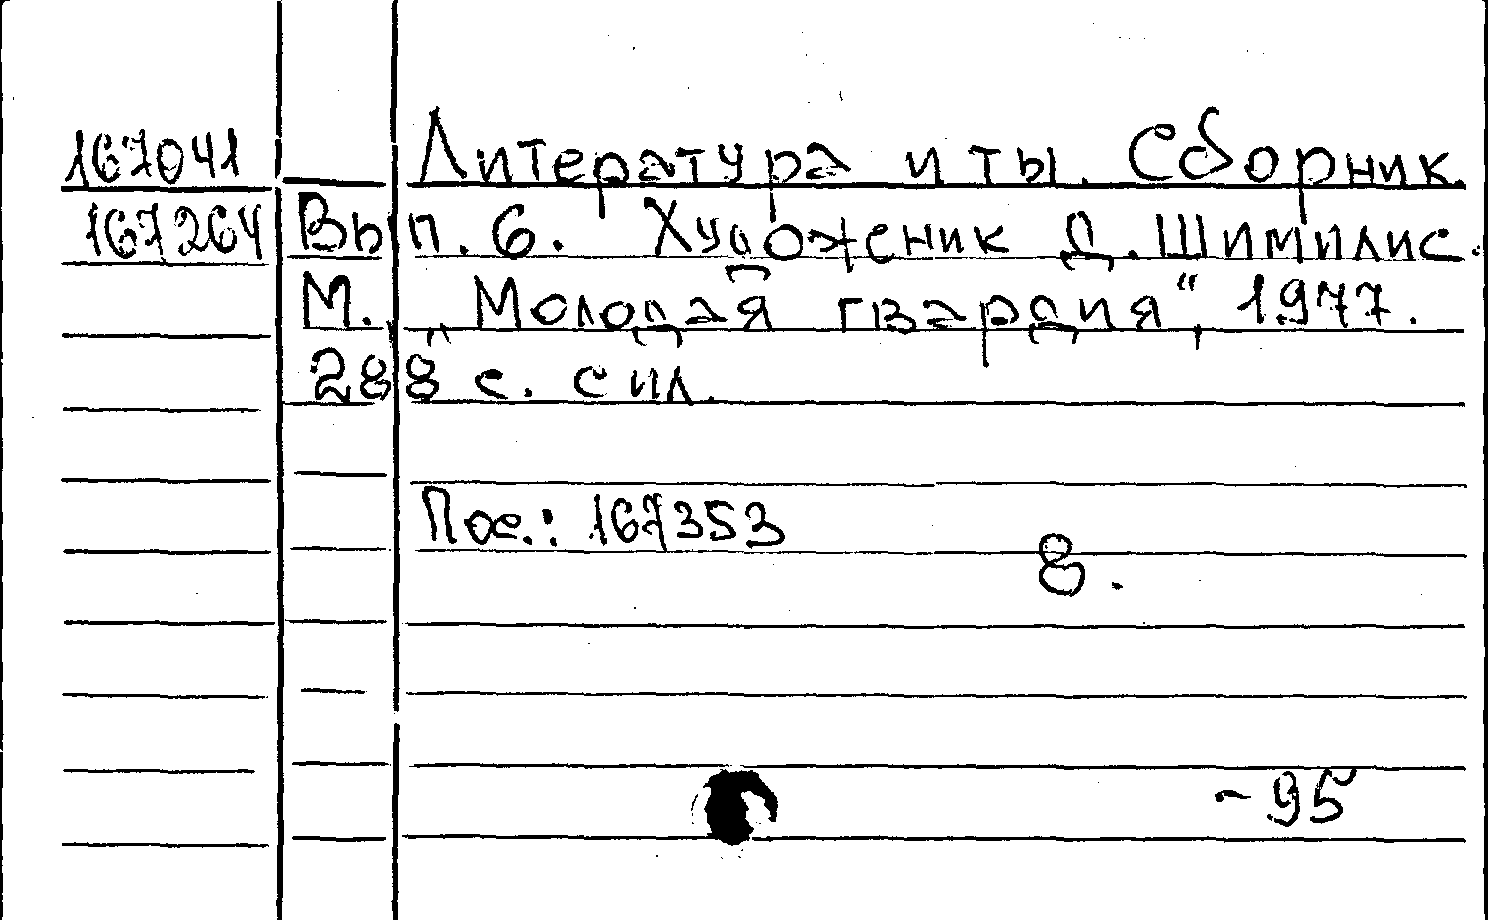 167041 Литература и ты. Сборник.
167264 Вып. 6. Художник Д. Шимилис.
М. „Молодая гвардия“, 1977.
288 с. с ил.
Пое.: 167353
8.
-95